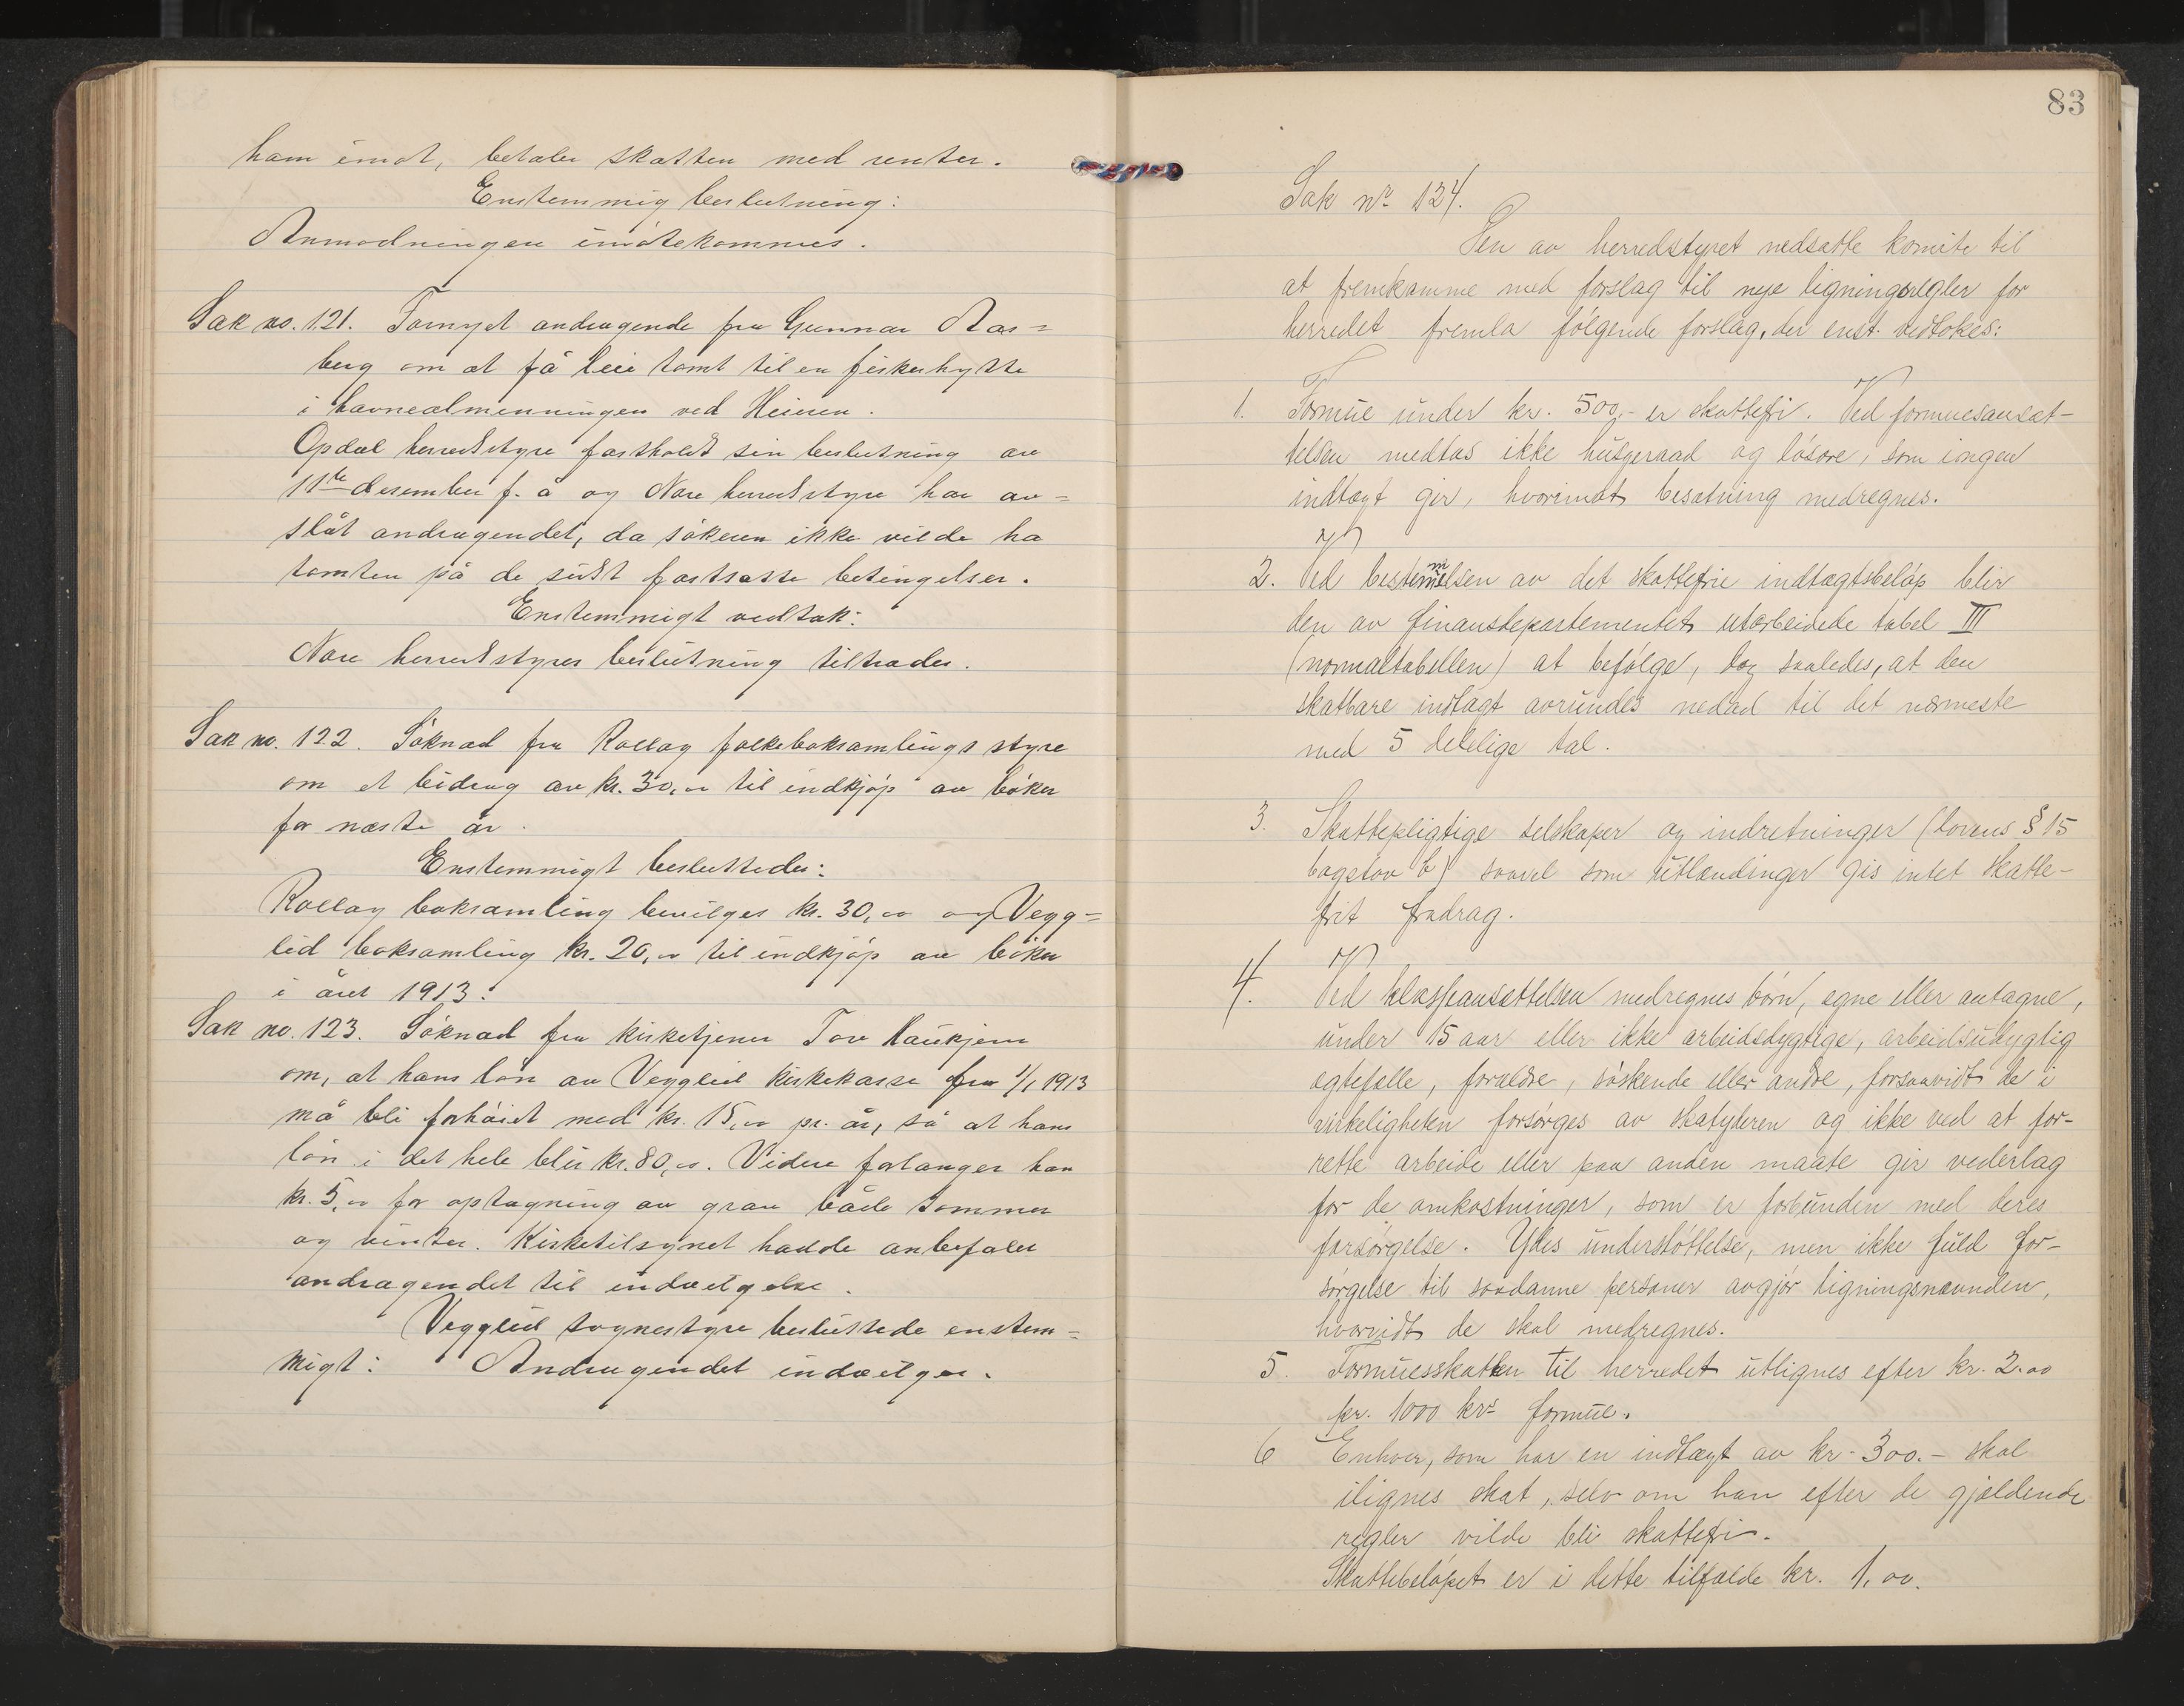 ham imot, betaler skatten med renter.
Enstemmig beslutning:
Anmodningen imøtekommes.
Sak no. 121. Fornyet andragende fra Gunnar Aas=
berg om at få leie tomt til en fiskerhytte
i havnealmenningen ved Heinen.
Opdal herredstyre fastholdt sin beslutning av
11te desember f. å og Nore herredstyre har av=
slåt andragendet, da søkeren ikke vilde ha
tomten på de sidst fastsatte betingelser.
Enstemmigt vedtak:
Nore herredstyres beslutning tiltrædes.
Sak no. 122. Søknad fra Rollag folkeboksamlings styre
om et bidrag av kr. 30,00 til indkjøp av bøker
for næste år.
Enstemmigt besluttedes:
Rollag boksamling bevilges kr. 30,00 og Vegg=
lid boksamling kr. 20,00 til indkjøp av bøker
i året 1913.
Sak no. 123. Søknad fra kirketjener Tore Haukjem
om, at hans løn av Vegglid kirkekasse fra 1/1 1913
må bli forhøiet med kr. 15,00 pr. år, så at hans
løn i det hele blir kr. 80,00. Videre forlanger han
kr. 5,00 for optagning av grav både sommer
og vinter. Kirketilsynet hadde anbefalet
andragendet til indvilgelse.
Vegglid sognestyre besluttede enstem=
migt: Andragendet indvilges.
83
Sak nr 124.
Den av herredstyret nedsatte komite til
at fremkomme med forslag til nye ligningsregler for
herredet fremla følgende forslag, der enst. vedtokes:
1. Formue under kr. 500,- er skattefri. Ved formuesansæt-
telsen medtas ikke husgeraad og løsøre, som ingen
indtægt gir, hvorimot besætning medregnes.
2. Ved bestemmelsen av det skattefrie indtægtsbeløp blir
den av Finansdepartementet utarbeidede tabel III
(normaltabellen) at befølge, dog saaledes, at den
skatbare indtægt avrundes nedad til det nærmeste
med 5 delelige tal.
3. Skattepligtige selskaper og indretninger (lovens § 15
bogstav b) saavel som utlændinger gis intet skatte-
frit fradrag.
4. Ved klasseansættelsen medregnes børn, egne eller antagne,
under 15 aar eller ikke arbeidsdygtige, arbeidsudygtig
egtefælle, forældre, søskende eller andre, forsaavidt de i
virkeligheten forsørges av skatyderen og ikke ved at for-
rette arbeide eller paa anden maate gir vederlag
for de omkostninger, som er forbunden med deres
forsørgelse. Ydes understøttelse, men ikke fuld for-
sørgelse til saadanne personer avgjør ligningsnævnden,
hvorvidt de skal medregnes.
5. Formuesskatten til herredet utlignes efter kr. 2.00
pr. 1000 krs formue.
6 Enhver, som har en indtægt av kr. 300.- skal
ilignes skat, selv om han efter de gjældende
regler vilde bli skattefri.
Skattebeløpet er i dette tilfælde kr. 1,00.